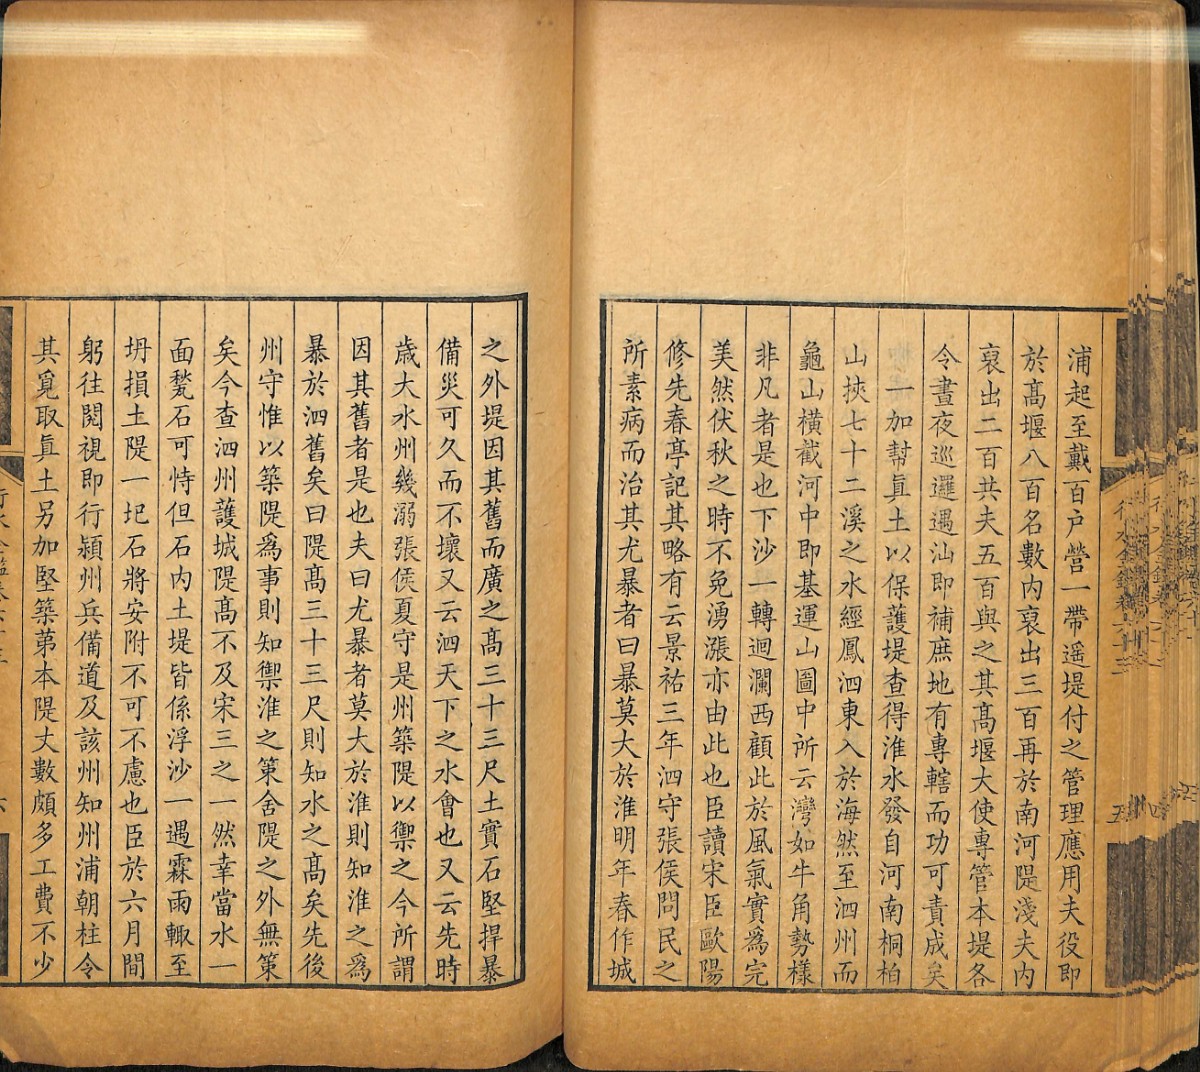 浦起至戴百户營一帶遥堤付之管理應用夫役即
於髙堰八百名數内裒出三百再於南河隄淺夫内
裒出二百共夫五百與之其髙堰大使專管本堤各
令晝夜巡邏遇汕即補庶地有專轄而功可責成矣
一加幫眞土以保護堤查得淮水發自河南桐柏
山挾七十二溪之水經鳳泗東入於海然至泗州而
龜山橫截河中即基運山圖中所云灣如牛角勢樣
非凡者是也下沙一轉迴瀾西顧此於風氣實爲完
美然伏秋之時不免湧漲亦由此也臣讀宋臣歐陽
修先春亭記其略有云景祐三年泗守張侯問民之
所素病而治其尤暴者曰暴莫大於淮明年春作城
之外堤因其舊而廣之髙三十三尺土實石堅捍暴
備災可久而不壞又云泗天下之水會也又云先時
歲大水州幾溺張侯夏守是州築隄以禦之今所謂
因其舊者是也夫曰尤暴者莫大於淮則知淮之爲
暴於泗舊矣曰隄髙三十三尺則知水之髙矣先後
州守惟以築隄爲事則知禦淮之策舍隄之外無策
矣今查泗州護城隄髙不及宋三之一然幸當水一
面甃石可恃但石内土堤皆係浮沙一遇霖雨輙至
坍損土隄一圮石將安附不可不慮也臣於六月間
躬往閱視即行潁州兵備道及該州知州浦朝柱令
其覓取眞土另加堅築第本隄丈數頗多工費不少